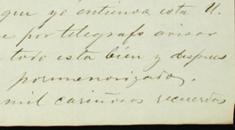 que yo entienda esta U.
e por telegrafo avisar
todo esta bien y despues
pormenorizada,
mil cariñosos recuerdos